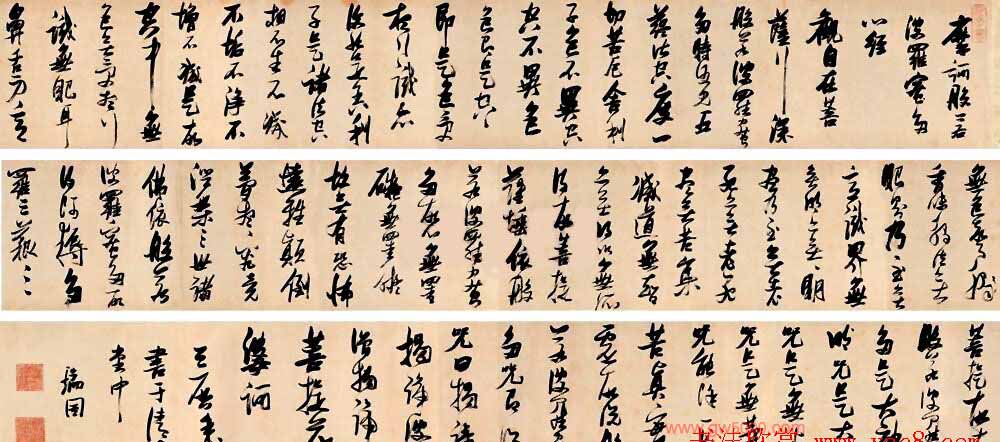 摩訶般若
波羅密多
心經
觀自在菩
薩行深
般若波羅密
多時照見五
蘊皆空度一
切苦厄舍利
子色不異空
空不異色
色即是空空
即是色受
想行識亦
復如是舍利
子是諸法空
相不生不滅
不垢不淨不
增不減是故
空中無
色無受想行
識無眼耳
鼻舌身意
無色聲香
味觸法無
眼界乃至無
意識界無
無明亦無無明
盡乃至無老
死亦無老死
盡無苦集
滅道無智
亦無得以無所
得故菩提
薩埵依般
若波羅密
多故心無罣
礙無罣礙
故無有恐怖
遠離顛倒
夢想究竟
涅槃三世諸
佛依般若
波羅密多故
得阿耨多
羅三藐三
菩提故知
般若波羅
多是大神
明咒是大
咒是無
咒是無等
咒能除一
苦真實
虛故說
若波羅
多咒即
咒曰揭
揭諦波
羅揭諦
菩提薩
婆訶
書于清
堂中
瑞圖
书法欣赏